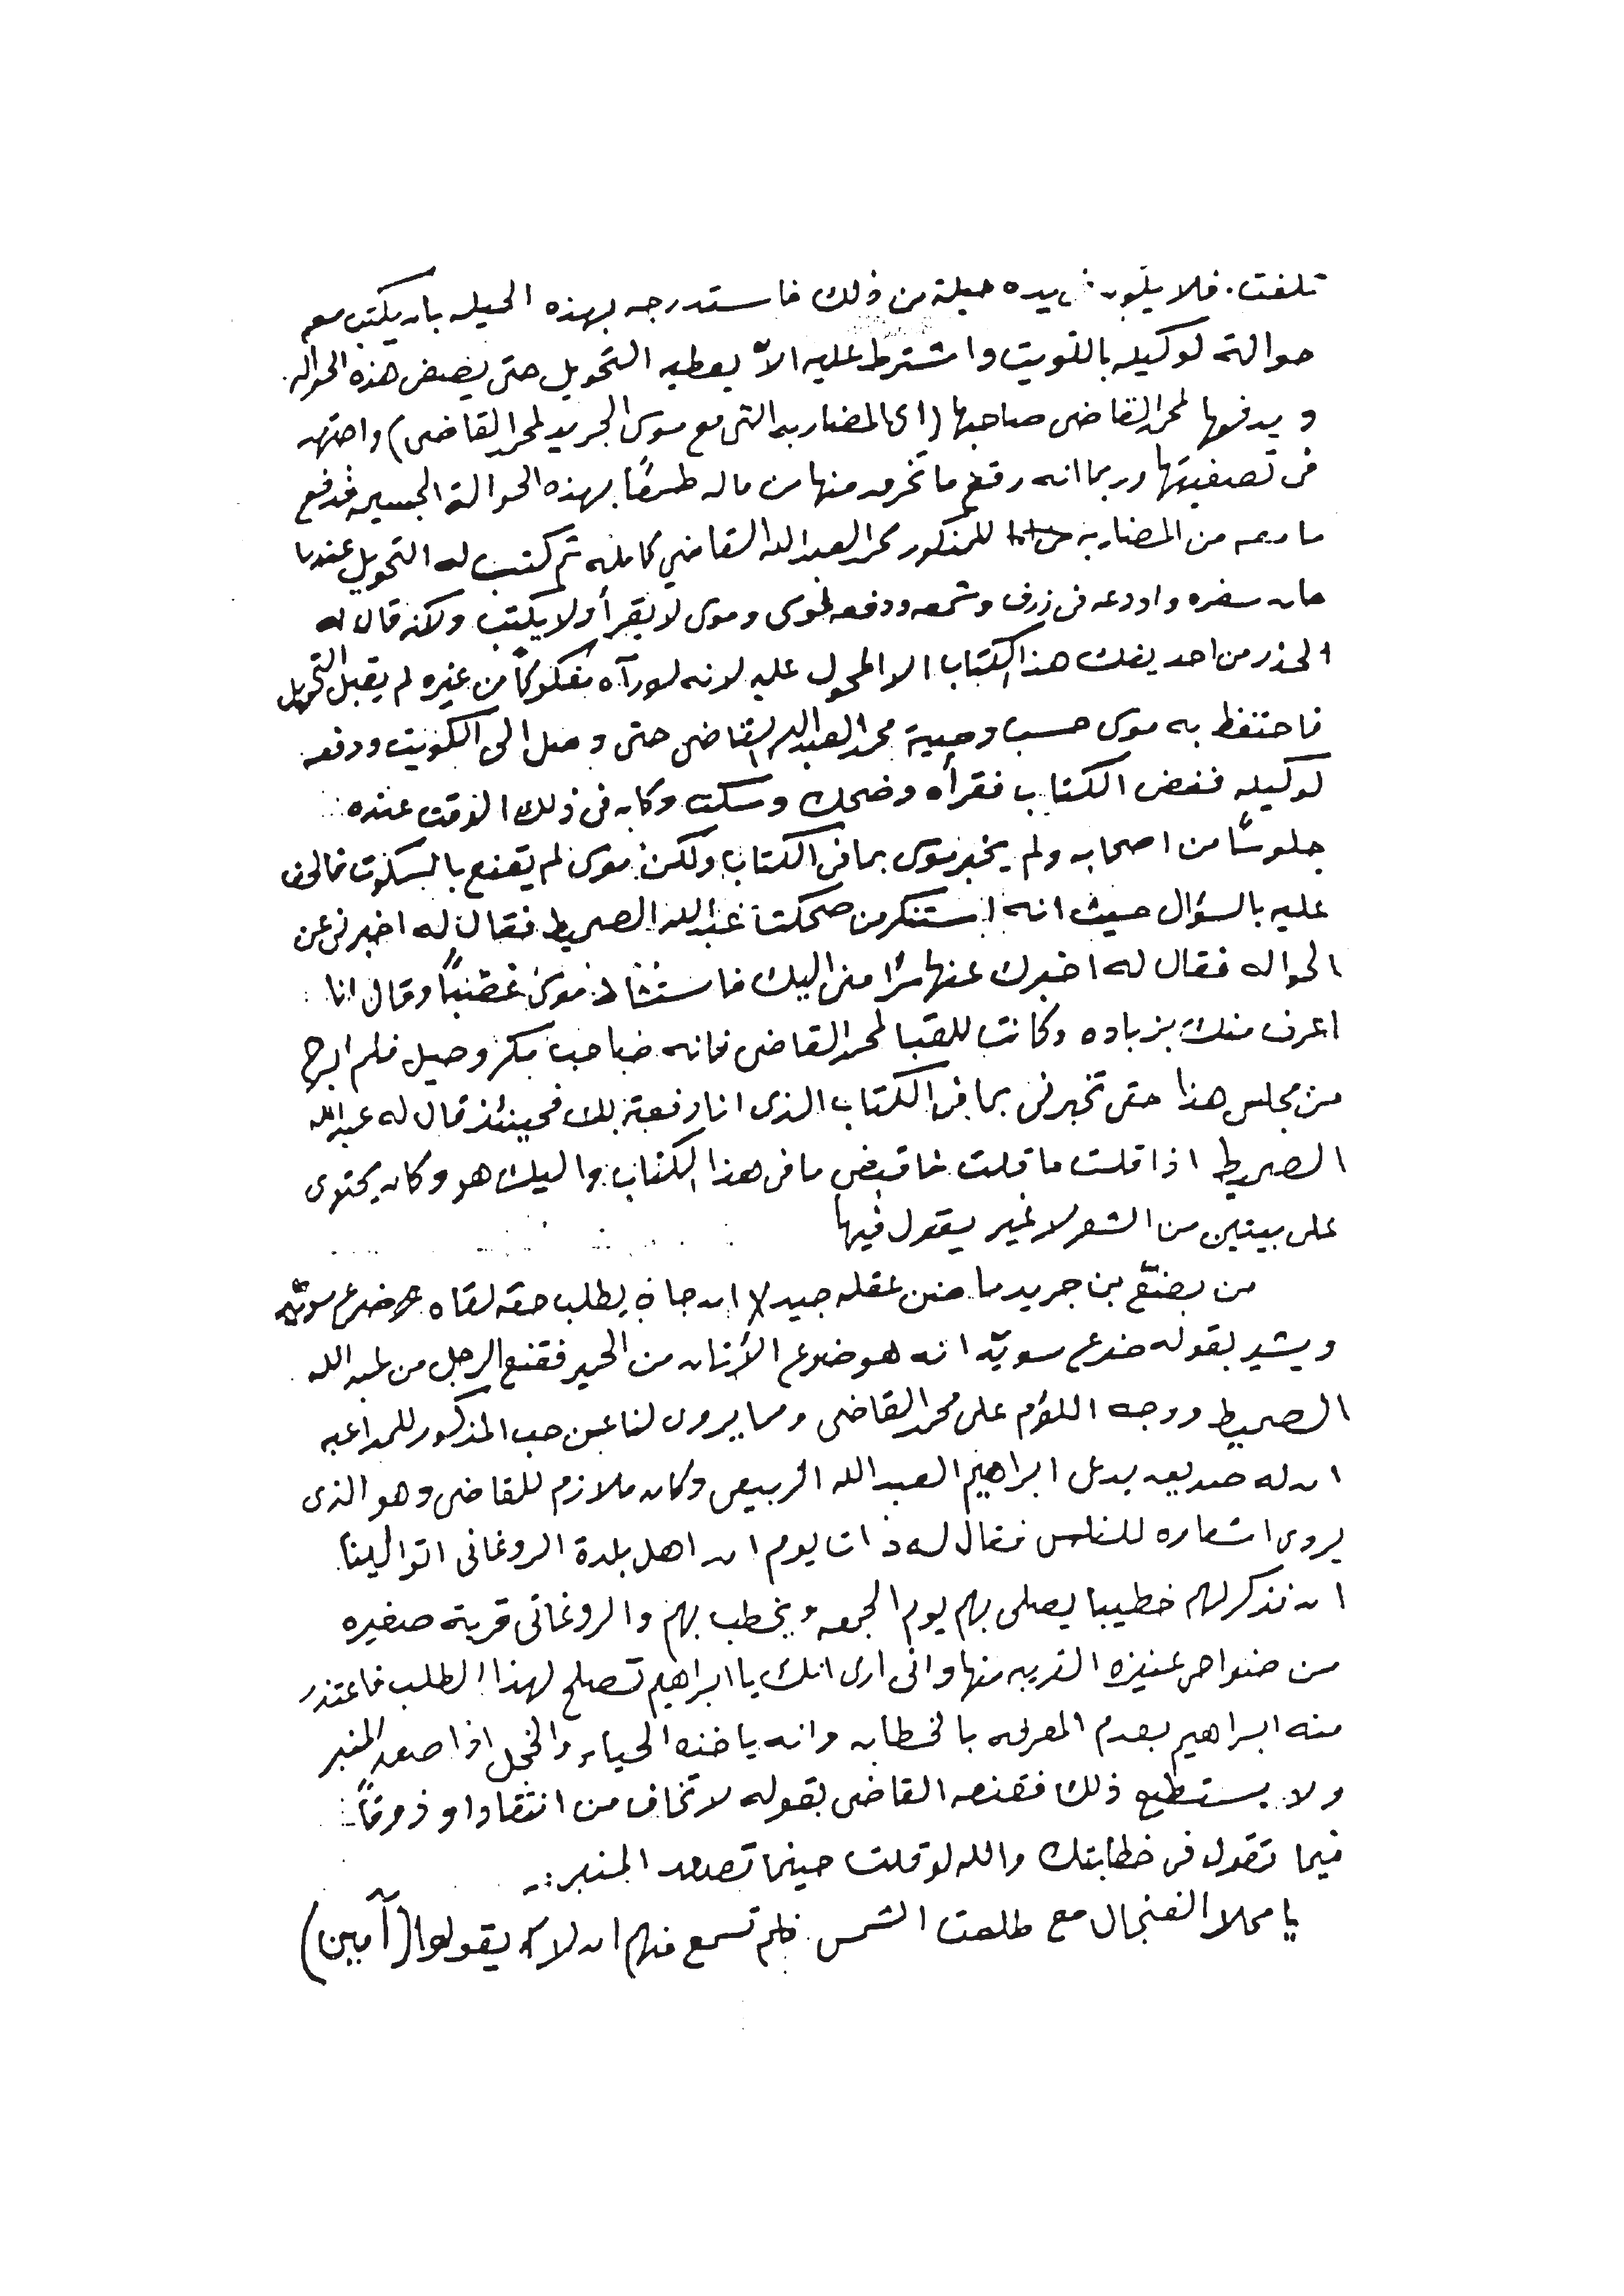 تلفت. فلا يكون في يده حيلة من ذلك فاستدرجه بهذه الحيله بان يكتب معه
حوالة لوكيله بالكويت واشترط عليه الاّ يعطيه التحويل حتى يصفي هذه الحواله
ويدفعها لمحمد القاضي صاحبها (اي المضاربه التي مع موسى الجريد لمحمد القاضي) واجتهد
في تصفيتها وربما انه رقع ما تخرق منها من ماله طمعًا بهذه الحوالة الجسيمه فدفع
ما معه من المضاربه للمذكور محمد العبدالله القاضي كامله ثم كتب له التحويل عندما
حان سفره واودعه في زرف وشمعه ودفعه لموسى وموسى لا يقرأ ولا يكتب ولكنه قال له
الحذر من احد يفك هذا الكتاب الا المحول عليه لانه لو رآه مفكوكًا من غيره لم يقبل التحويل
فاحتفظ به موسى حسب وصية محمد العبدالله القاضي حتى وصل الى الكويت ودفعه
لوكيله ففض الكتاب فقرأه وضحك وسكت وكان في ذلك الوقت عنده
جلوسًا من اصحابه ولم يخبر موسى بما في الكتاب ولكن موسى لم يقنع بالسكوت فالحف
عليه بالسؤال حيث انه استنكر من ضحكت عبدالله الصميط فقال له اخبرني عن
الحواله فقال له اخبرك عنها سرًا مني اليك فاستشاط موسى غضبًا وقال انا
اعرف منك بزياده وكانت للقبا لمحمد القاضي فانه صاحب مكر وحيل فلم ابرح
من مجلس هذا حتى تخبرني بما في الكتاب الذي انا دفعته لك فحينئذ قال له عبدالله
الصميط اذا قلت ما قلت فاقبض ما في هذا الكتاب واليك هو وكان يحتوي
على بيتين من الشعر لا غير يقول فيها
من بضّع بن جريد ما ضن عقله جيد لا ان جاه يطلب حقه لقاه ضرع سويّد
ويشير بقوله ضرع سويّد انه هو ضرع الأتان من الحمير فقنع الرجل من عبدالله
الصميط ووجه اللؤم على محمد القاضي ومما يروى لنا عن حب المذكور للمداعبه
ان له صديق يدعى ابراهيم العبدالله الربيعي وكان ملازم للقاضي وهو الذي
يروي اشعاره للناس فقال له ذات يوم ان اهل بلدة الروغاني اتوا الينا
ان نذكر لهم خطيبا يصلي بهم يوم الجمعه ويخطب بهم والروغاني قرية صغيره
من ضواحي عنيزه القريبه منها واني ارى انك يا ابراهيم تصلح لهذا الطلب فاعتذر
منه ابراهيم بعدم المعرفه بالخطابه وانه ياخذه الحياء والخجل اذا صعد المنبر
ولا يستطيع ذلك فقنعه القاضي بقوله لا تخاف من انتقاد او ذم وقًا
فيما تقول في خطابتك والله لو قلت حينما تصعد المنبر :-
يا محلا الفنجال مع طلعت الشمس. فلم تسمع منهم ان لا يقولوا (آمين)